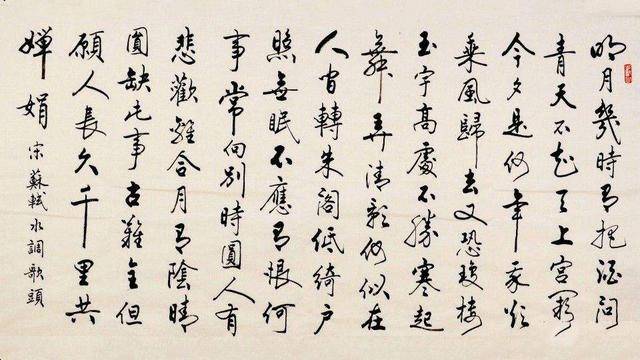 明月幾時有把酒問
青天不知天上宮闕
今夕是何年我欲
乘風歸去又恐瓊樓
玉宇高處不勝寒起
舞弄清影何似在
人間轉朱閣低綺戶
照無眠不應有恨何
事常向別時圓人有
悲歡離合月有陰晴
圓缺此事古難全但
願人長久千里共
嬋娟
宋蘇軾水調歌頭